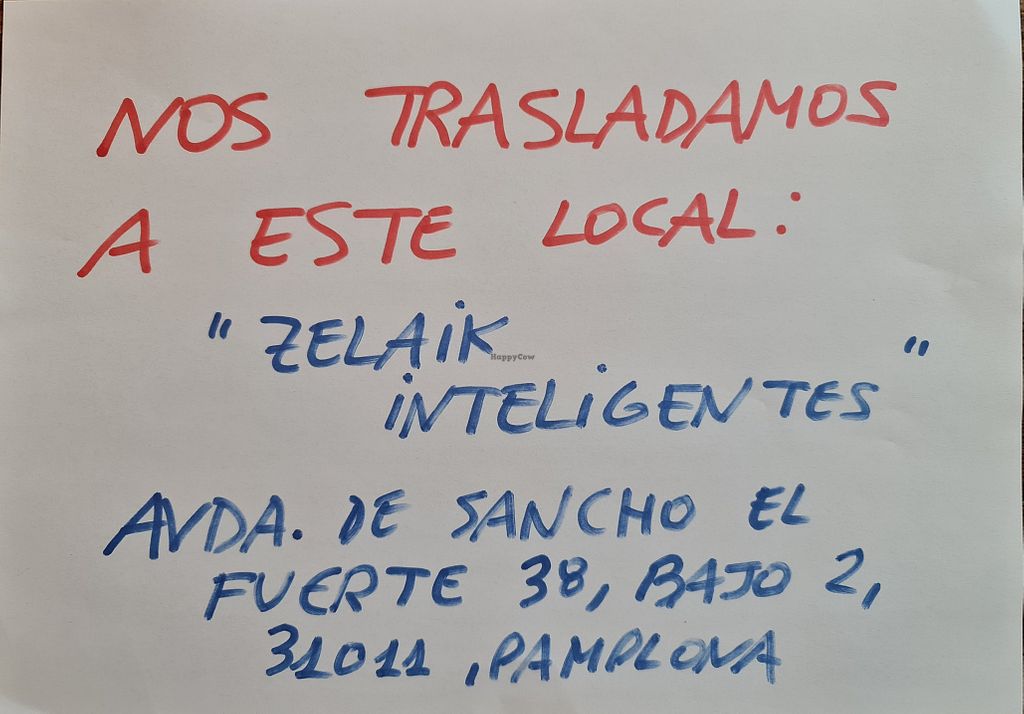 NOS TRASLADAMOS
A ESTE LOCAL:
" ZELAiK "
HappyCow
iNTELiGENTES
AVDA. DE SANCHO EL
FUERTE 38, BAJO 2,
31011 , PAMPLONA